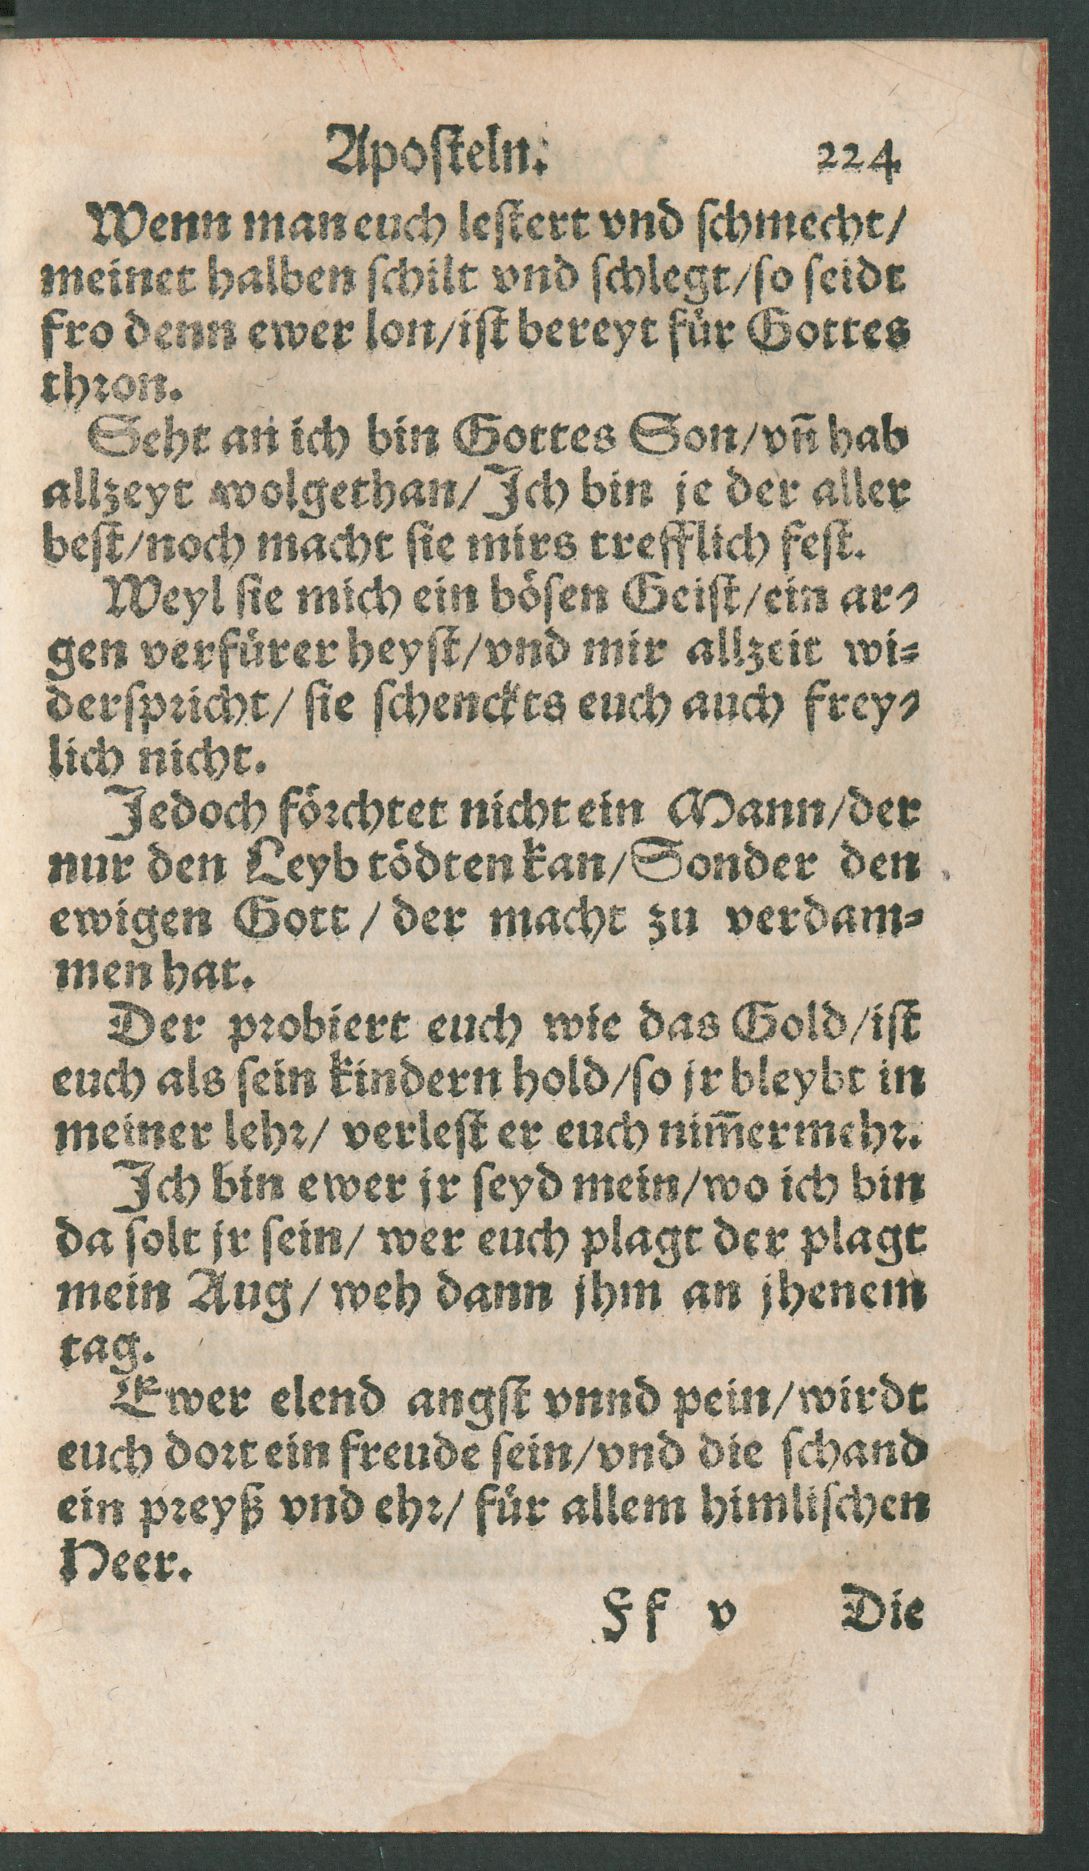 Aposteln. 224
Wenn man euch lestert vnd schmecht/
meinet halben schilt vnd schlegt/so seidt
fro denn ewer lon/ist bereyt für Gottes
thron.
Seht an ich bin Gottes Son/vn̄ hab
allzeyt wolgethan/Ich bin je der aller
best/noch macht sie mirs trefflich fest.
Weyl sie mich ein bösen Geist/ein ar-
gen verfürer heyst/vnd mir allzeit wi-
derspricht/ sie schenckts euch auch frey-
lich nicht.
Jedoch förchtet nicht ein Mann/der
nur den Leyb tödten kan/Sonder den
ewigen Gott/ der macht zu verdam-
men hat.
Der probiert euch wie das Gold/ist
euch als sein kindern hold/so jr bleybt in
meiner lehr/ verlest er euch nim̄ermehr.
Ich bin ewer jr seyd mein/wo ich bin
da solt jr sein/ wer euch plagt der plagt
mein Aug/ weh dann jhm an jhenem
tag.
Ewer elend angst vnnd pein/wirdt
euch dort ein freude sein/vnd die schand
ein preyß vnd ehr/ für allem himlischen
Heer.
Ff v Die